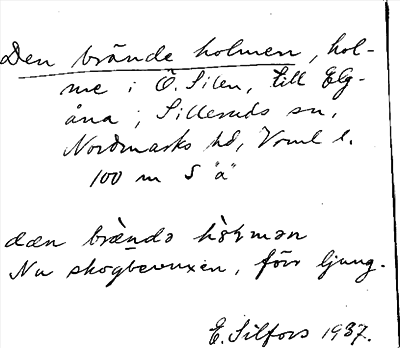 Den brände holmen, hol-
me i Ö. Silen, till Elg-
åna, Silleruds sn,
Nordmarks hd, Vrml l.
100 m S "a"
dæn brændə hɔʅmən
Nu skogbevuxen, förr ljung.
E. Silfors 1937.